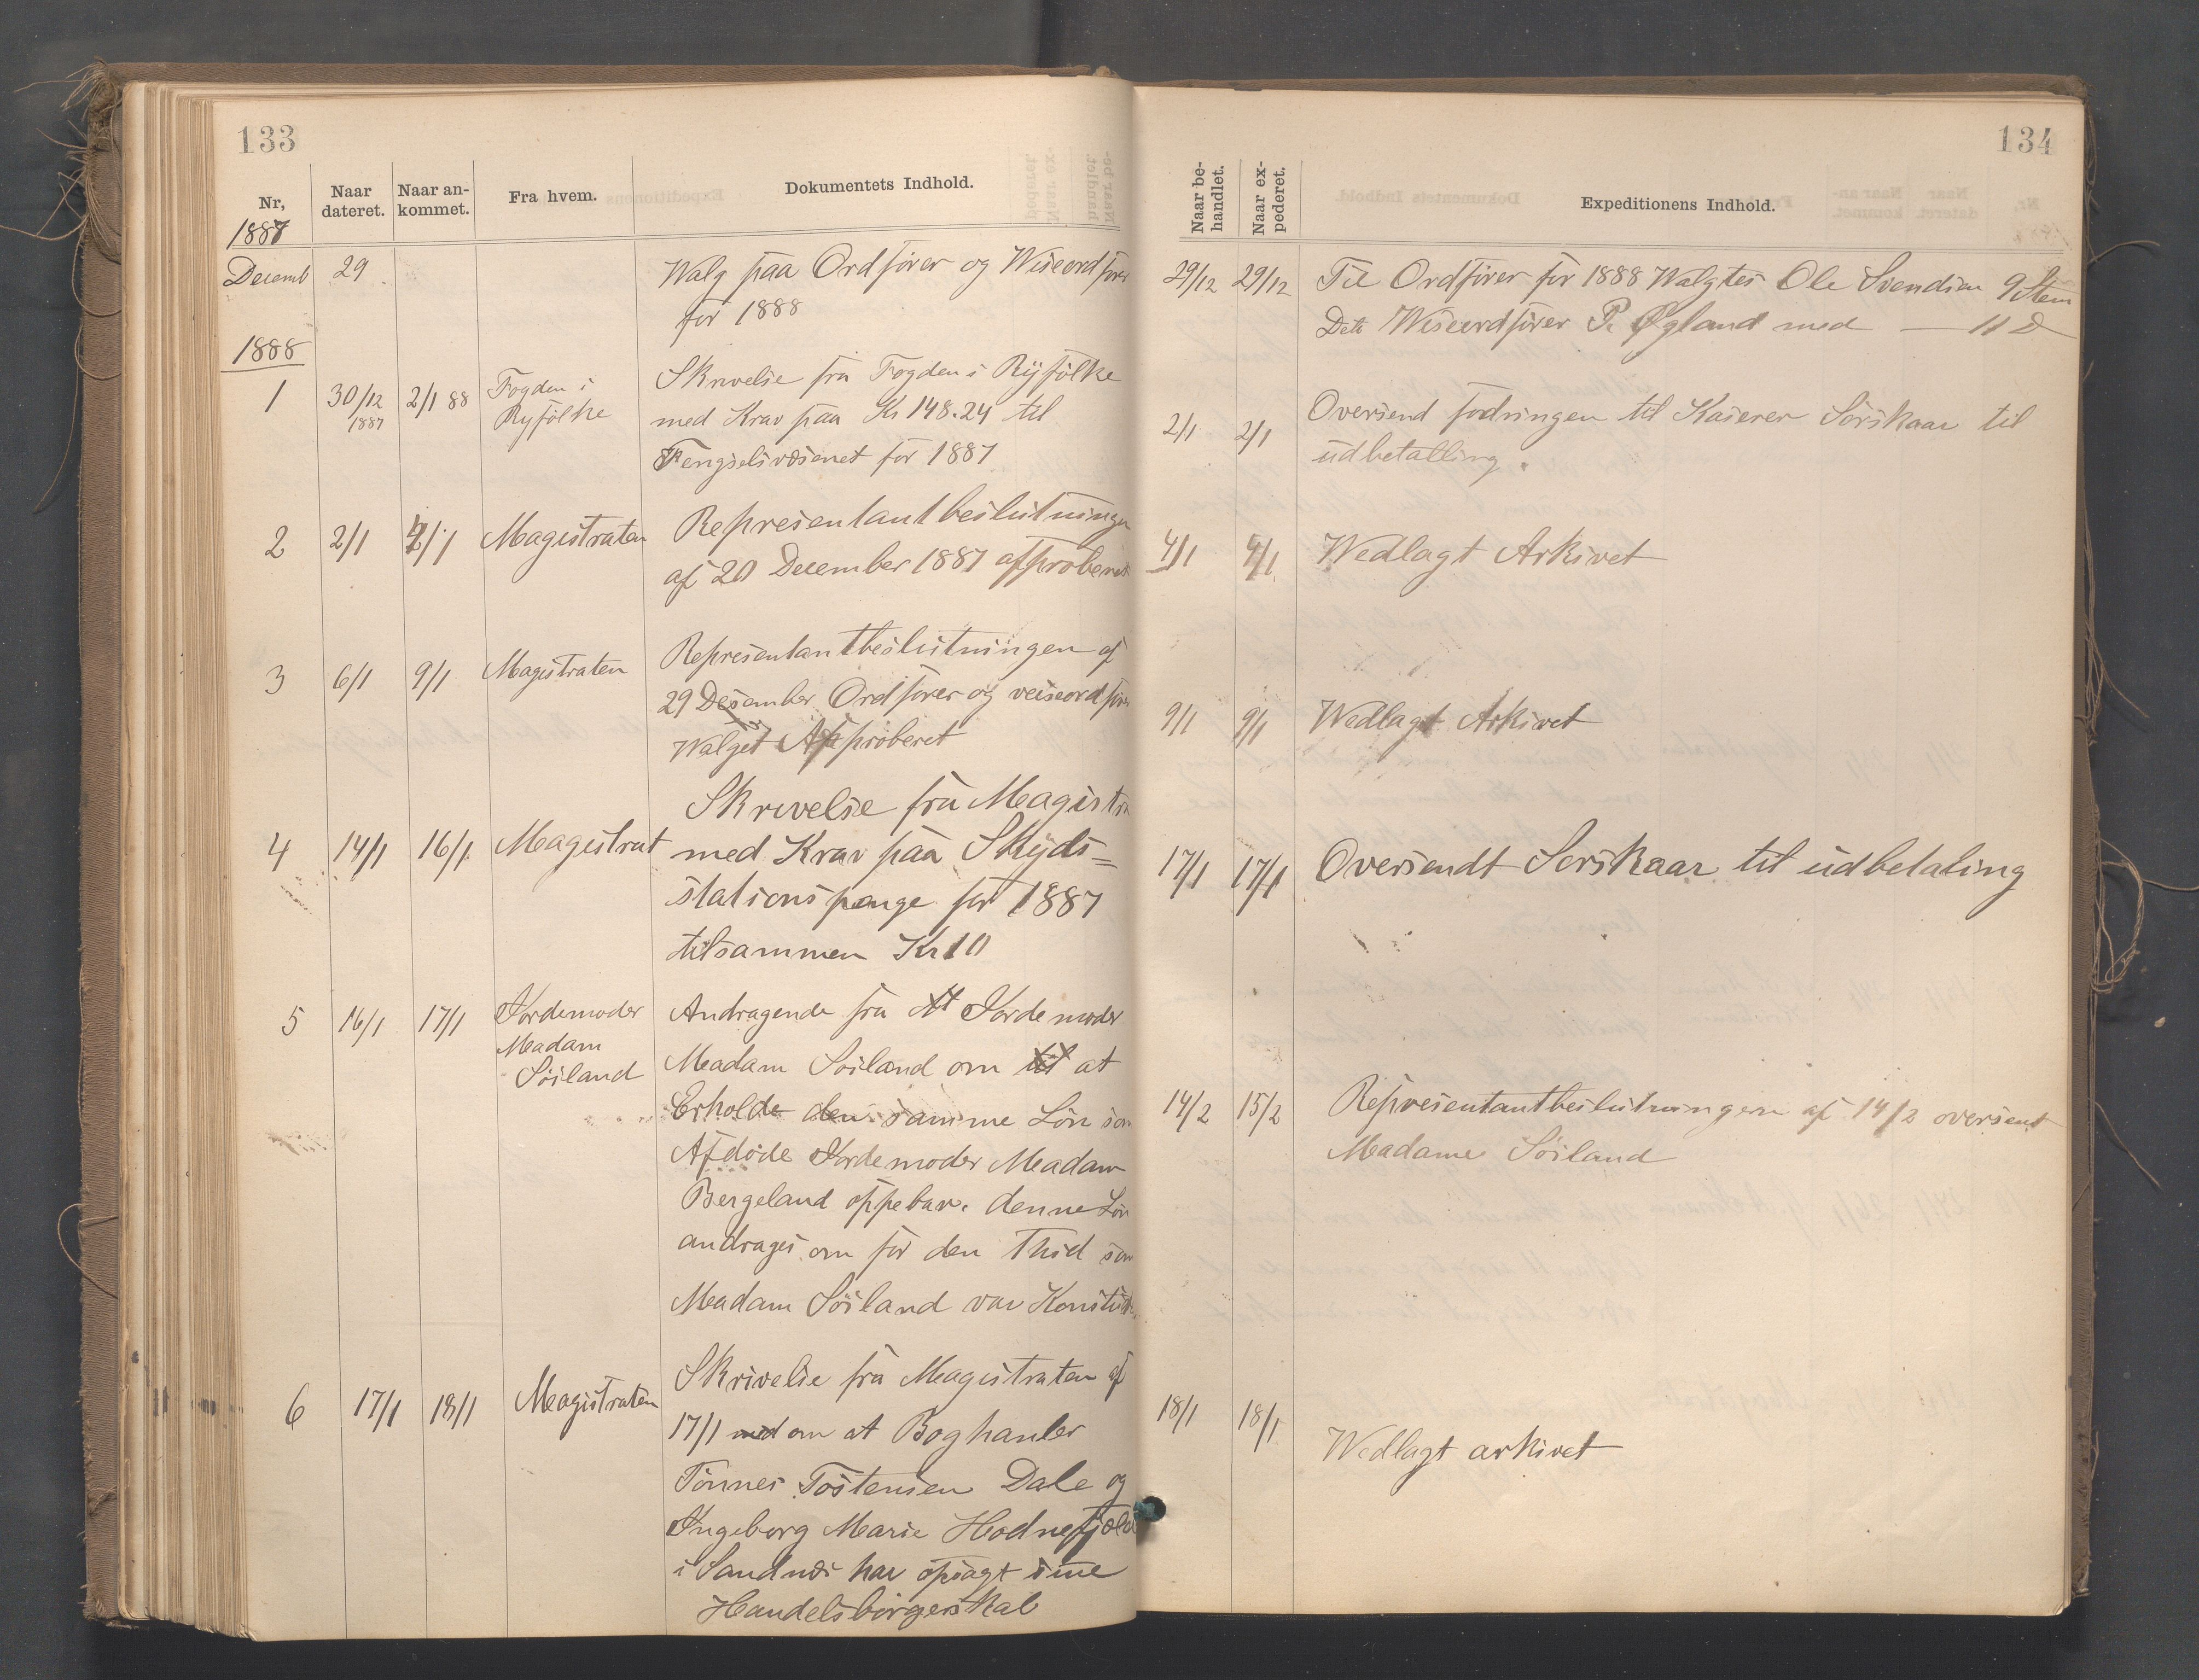 133
Nr,
Naar dateret.
Naar an-kommet.
Fra hvem.
Dokumentets Indhold.
1887
Decemb 29
Walg paa Ordfører og Wiseordfører
for 1888
1888
1 30/12 1887 2/1 88
Fogden i
Ryfölke
Skrivelse fra Fogden i Ryfölke
med Krav paa Kr 148.24 til
Fengselsvæsenet for 1887
2 2/1 4/1 Magistraten
Representantbeslutningen
af 20 December 1887 approberet
3 6/1 9/1 Magistraten
Representantbeslutningen af
29 Desember Ordfører og veiseordfører
Walget Approberet
4 14/1 16/1 Magistrat
Skrivelse fra Magistra
med Krav paa Skyds=
stationspenge for 1887
tilsammen Kr 10
5 16/1 17/1
Jordemoder
Madam
Söiland
Andragende fra Jordemoder
Madam Söiland om at
Erholde den samme Lön som
Afdöde Jordemoder Madam
Bergeland oppebar. denne Lön
andrages om for den Thid som
Madam Söiland var Konstid
6 17/1 18/1 Magistraten
Skrivelse fra Magistraten af
17/1 om at Boghanler
Tönnes Tostensen Dale og
Ingeborg Marie Hodnefjeld
i Sandnæs har opsagt sine
Handelsborgerskab
134
Naar be-handlet.
Naar ex-pederet.
Expeditionens Indhold.
29/12 29/12 Til Ordförer for 1888 Walgtes Ole Svendsen 9 Stem
Dets Wiseordförer P. Øgland med — 11 D
2/1 2/1 Oversend fodringen til Kaserer Sörskaar til
udbetalling.
4/1 4/1 Wedlagt Arkivet
9/1 9/1 Wedlagt Arkivet
17/1 17/1 Oversendt Sorskaar til udbetaling
14/2 15/2 Representantbeslutningen af 14/2 oversent
Madame Söiland
18/1 18/1
Wedlagt arkivet